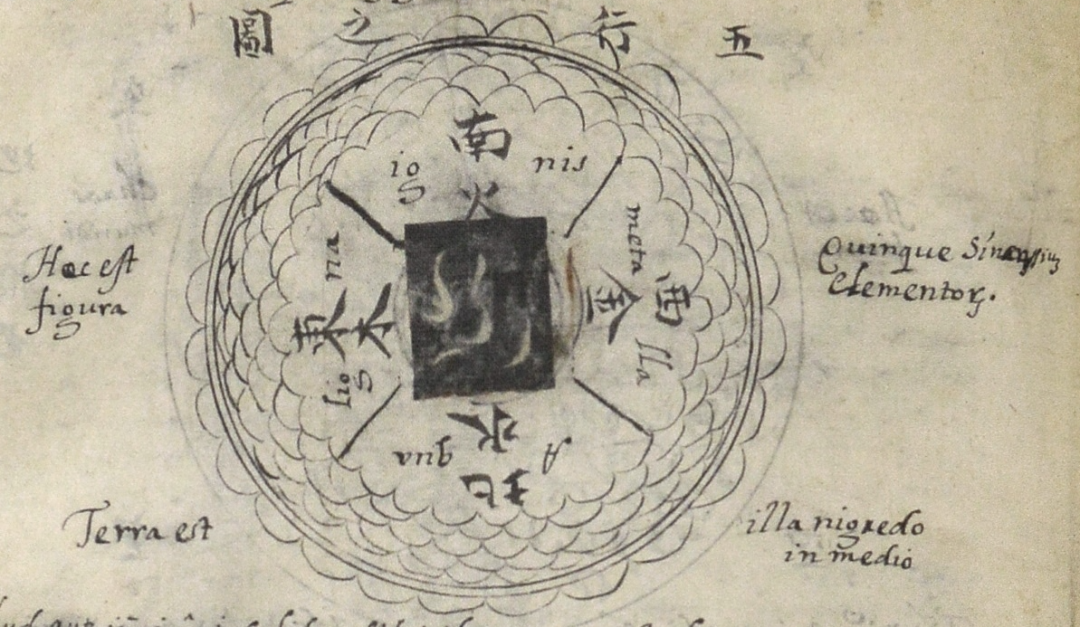 五行之圖
南
火
ig nis
na
meta
東木
金西
lig
lla
水
A qua
北
Hoc est
figura
Quinque
Elementor.
Terra est
illa nigredo
in medio